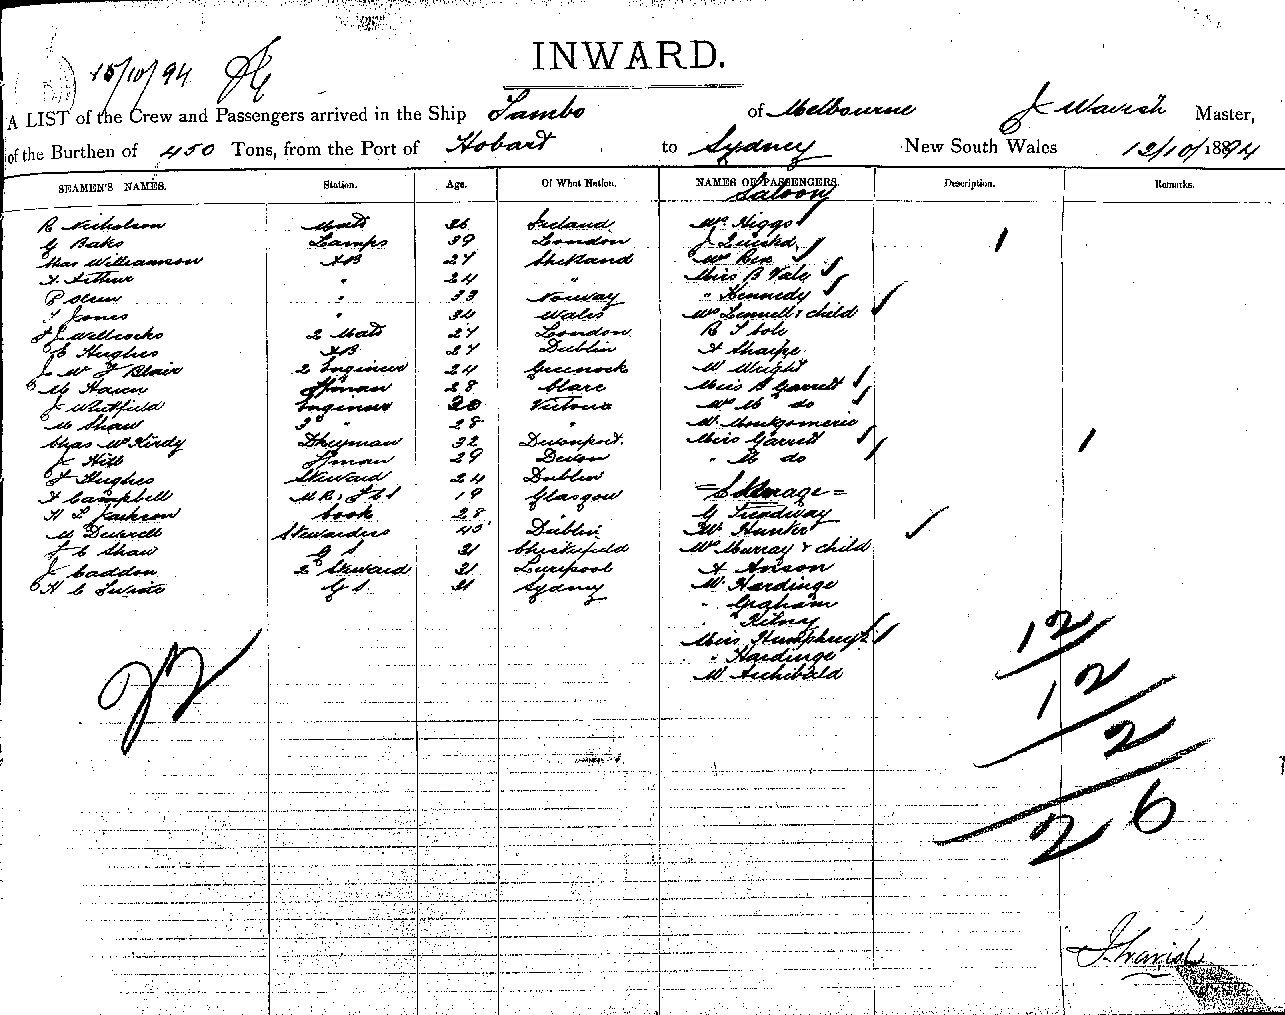 INWARD.
15/10/94
A LIST of the Crew and Passengers arrived in the Ship Tambo of Melbourne J Wavish Master,
of the Burthen of 450 Tons, from the Port of Hobart to Sydney New South Wales 12/10/1894
SEAMEN'S NAMES. Station. Age. Of What Nation. NAMES OF PASSENGERS. Description. Remarks.
Saloon
R Nicholson Mate 36 Ireland Mrs Higgs
G Baks Lamps 39 London J
Chas Williamson AB 27 Shetland Mrs Rex
A Arthur " 24 " Miss B Vale
P Olsen " 33 Norway " Kennedy
T Jones " 34 Wales Mrs Linnell & child
J Wellcocks 2 Mate 27 London R T
E Hughes AB 27 Dublin A Sharpe
J Mc F Blair 2 Engineer 24 Greenock W Wright
M Haren Fman 28 Clare Miss B Garrett
J Whitfield Engineer 30 Victoria Mrs M do
M Shaw 3rd " 28 " W Montgomerie
Chas McKirdy Dkeyman 32 Devonport. Miss Garrett
J Hill Fman 29 Devon " M do
T Hughes Steward 24 Dublin
A Campbell 19 Glasgow = Steerage =
H L Jackson Cook 28 G Treadway
M Stewardess 40 Dublin Mr Hunter
J C Shaw G S 21 Chesterfield Mrs Murray & child
J Caddon 2nd Steward 21 Liverpool A Anson
H C G S. 21 Sydney W. Hardinge
" Graham
"
Miss Humphreys
" Hardinge
W Archibald
22
12
12
2
26
J. Wavish